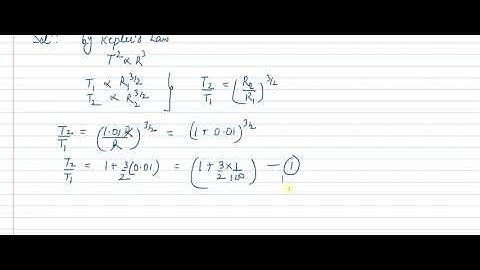 Sol": by Kepler's Law
T² ∝ R³
T₁ ∝ R₁^3/2
T₂ ∝ R₂^3/2 } T₂/T₁ = (R₂/R₁)^3/2
T₂/T₁ = (1.01R/R)^3/2 = (1 + 0.01)^3/2
T₂/T₁ = 1 + 3/2(0.01) = (1 + 3/2 × 1/100) — ①